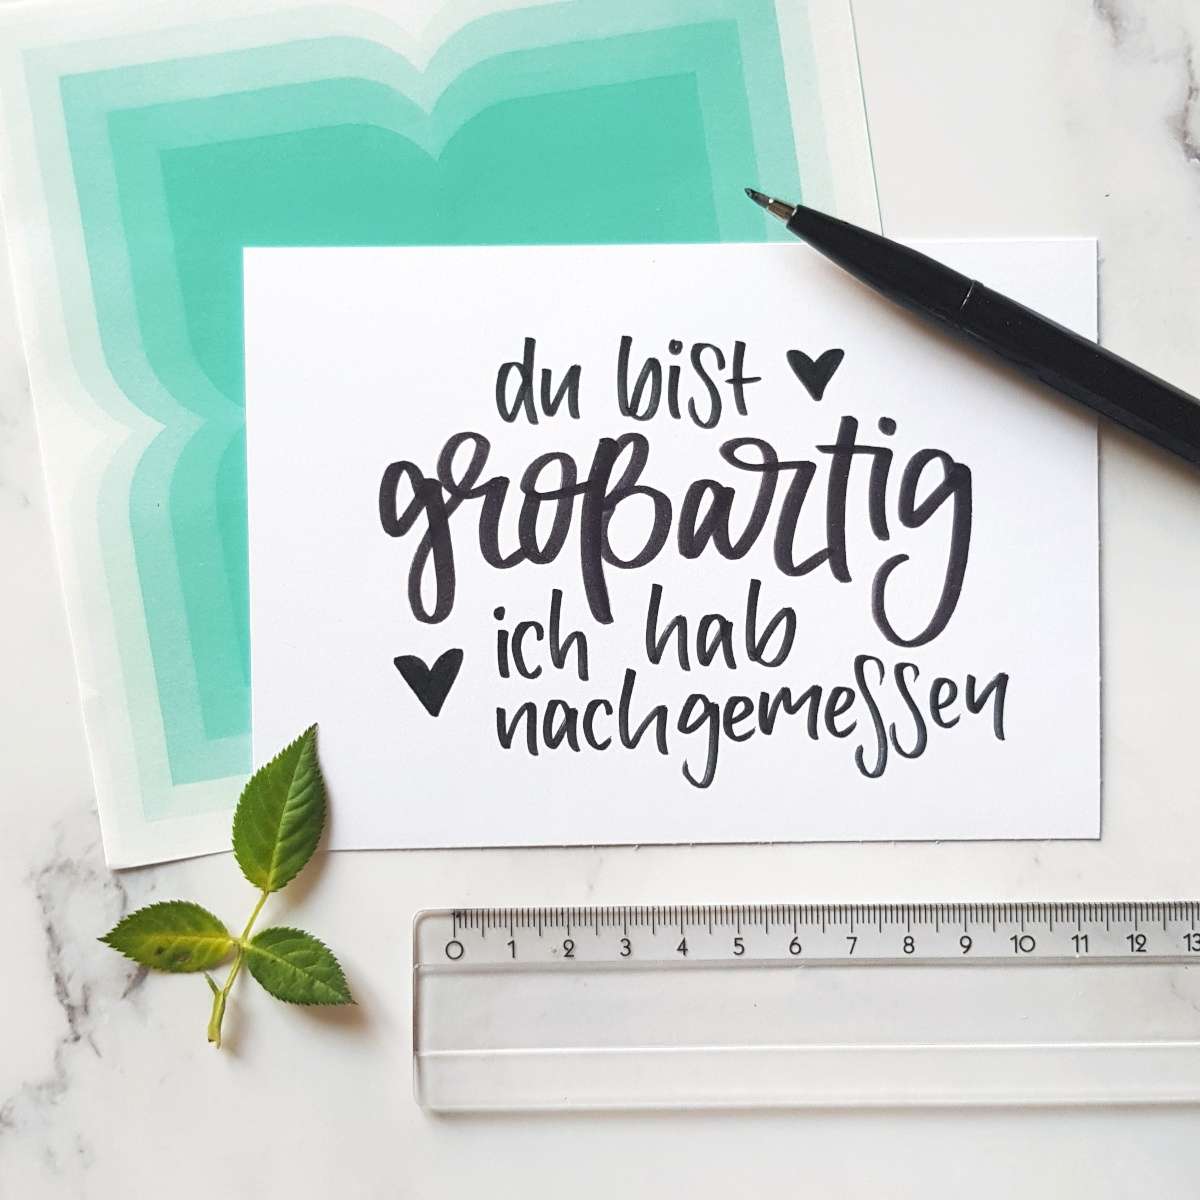 du bist
großartig
ich hab
nachgemessen
0 1 2 3 4 5 6 7 8 9 10 11 12 13